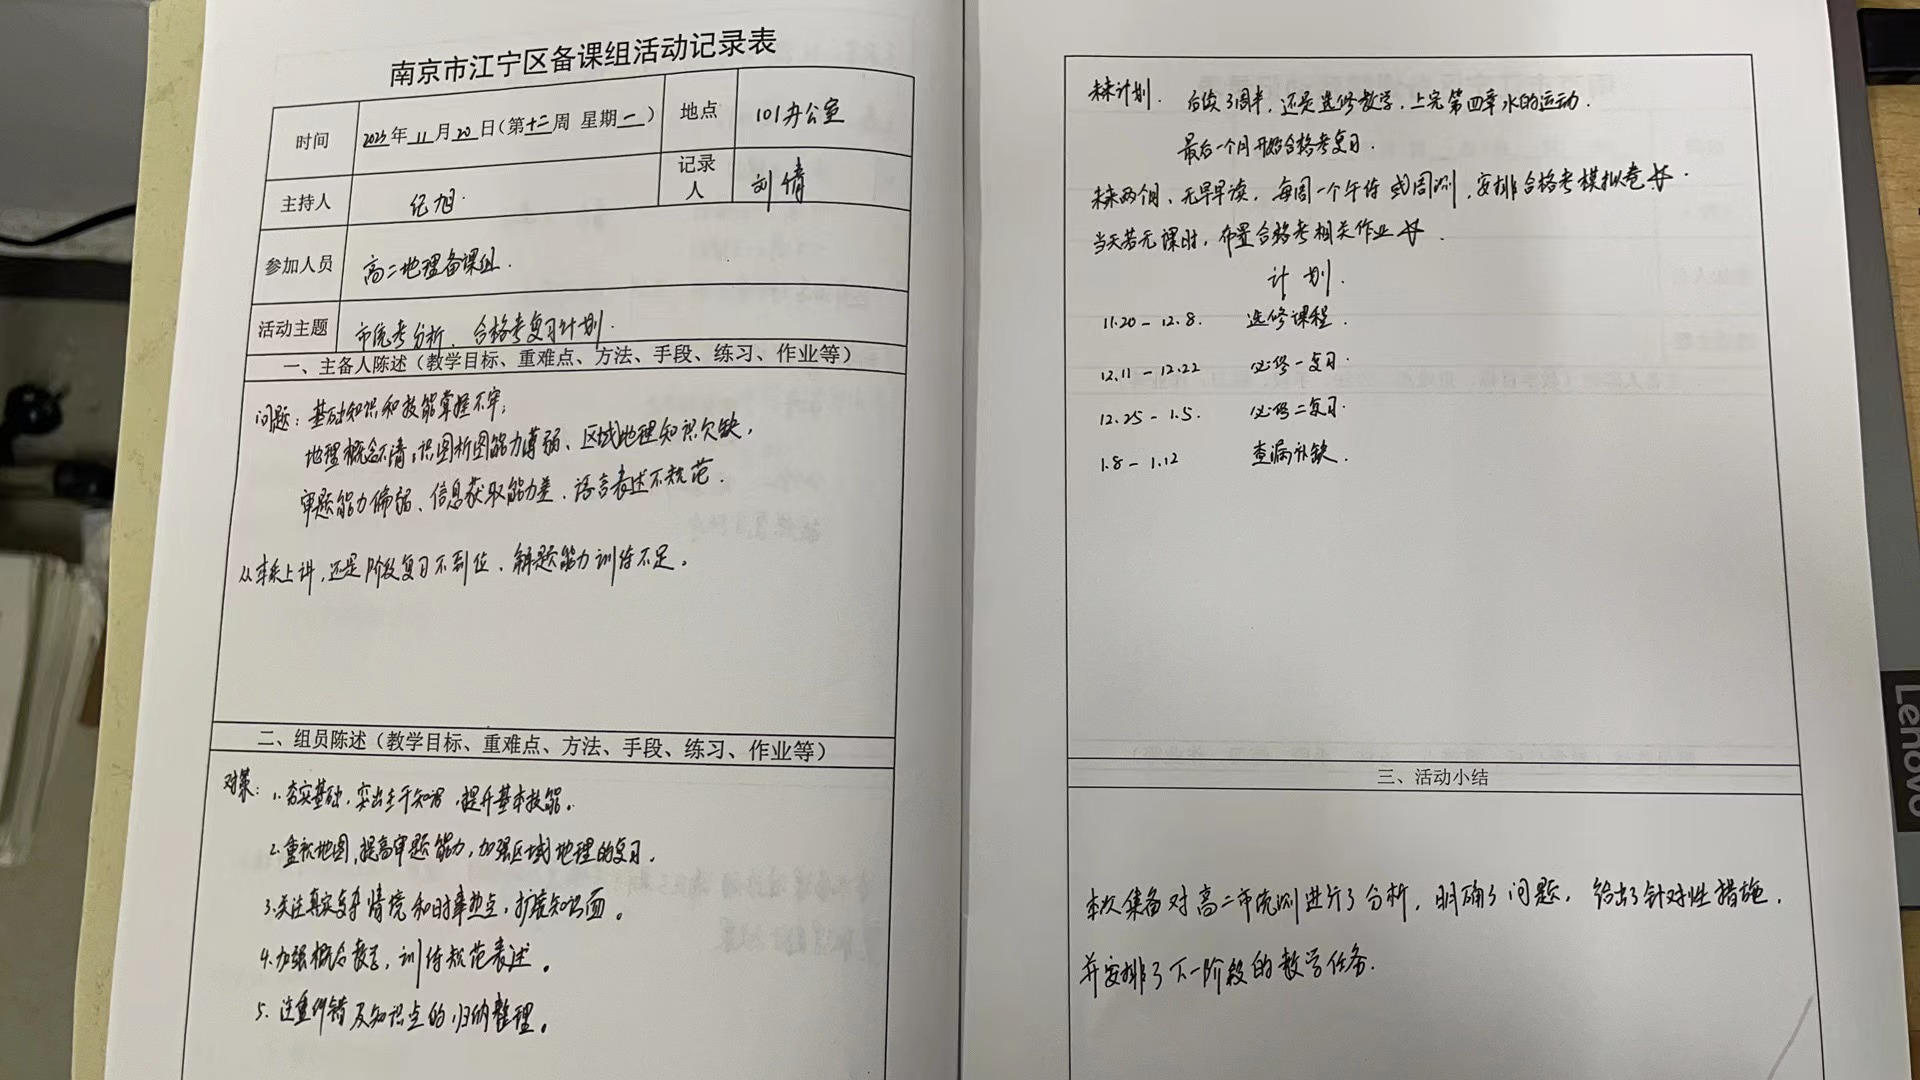 南京市江宁区备课组活动记录表
时间 2023年11月20日(第十二周 星期一) 地点 101办公室
主持人 纪旭. 记录人 刘倩
参加人员 高二地理备课组.
活动主题 市统考分析、合格考复习计划.
一、主备人陈述(教学目标、重难点、方法、手段、练习、作业等)
问题:基础知识和技能掌握不牢;
地理概念不清、识图析图能力薄弱、区域地理知识欠缺,
审题能力偏弱、信息获取能力差、语言表述不规范.
从本质上讲,还是阶段复习不到位、解题能力训练不足。
二、组员陈述(教学目标、重难点、方法、手段、练习、作业等)
对策:1.夯实基础,突出主干知识,提升基本技能。
2.重视地图,提高审题能力,加强区域地理的复习.
3.关注真实复杂情境和时事热点,扩展知识面。
4.加强概念教学,训练规范表述。
5.注重纠错及知识点的归纳整理。
未来计划. 后续3周半,还是选修教学,上完第四章水的运动.
最后一个月开始合格考复习.
未来两个月,无早早读,每周一个午练或周测,安排合格考模拟卷
当天若无课时,布置合格考相关作业
计划.
11.20-12.8. 选修课程.
12.11-12.22 必修一复习.
12.25-1.5. 必修二复习.
1.8-1.12 查漏补缺.
三、活动小结
本次集备对高二市统测进行了分析,明确了问题,给出了针对性措施,
并安排了下一阶段的教学任务.
Lenovo